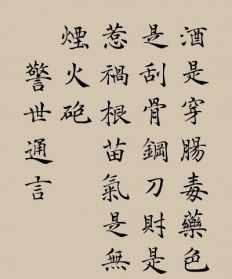 酒是穿腸毒藥色
是刮骨鋼刀財是
惹禍根苗氣是無
煙火砲
警世通言